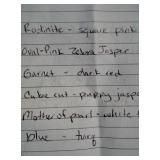 Rodinite - square pink
Oval-Pink Zebra Jasper
Garnet - dark red
Cube cut - puppy jaspe
Mother of pearl - white
blue -